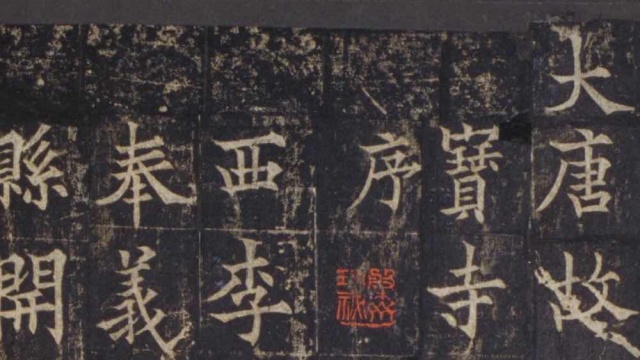 大唐故
寶寺
序
西李
奉義
縣開